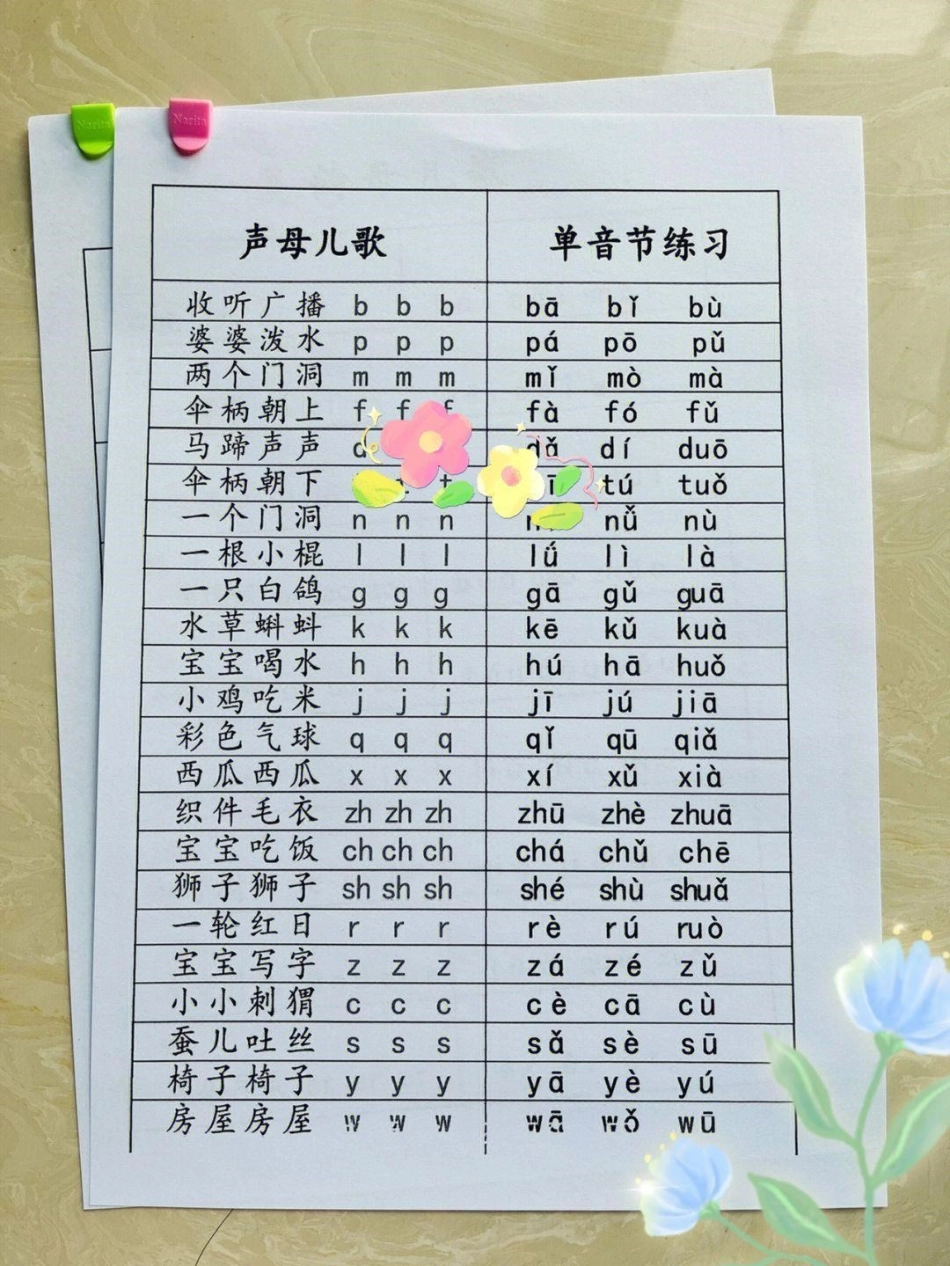 Narita Narita
声母儿歌 单音节练习
收听广播 b b b bā bǐ bù
婆婆泼水 p p p pá pō pǔ
两个门洞 m m m mǐ mò mà
伞柄朝上 f f f fà fó fǔ
马蹄声声 dǎ dí duō
伞柄朝下 t tú tuǒ
一个门洞 n n n nǚ nù
一根小棍 l l l lǘ lì là
一只白鸽 g g g gā gǔ guā
水草蝌蚪 k k k kē kǔ kuà
宝宝喝水 h h h hú hā huǒ
小鸡吃米 j j j jī jú jiā
彩色气球 q q q qǐ qū qiǎ
西瓜西瓜 x x x xí xǔ xià
织件毛衣 zh zh zh zhū zhè zhuā
宝宝吃饭 ch ch ch chá chǔ chē
狮子狮子 sh sh sh shé shù shuǎ
一轮红日 r r r rè rú ruò
宝宝写字 z z z zá zé zǔ
小小刺猬 c c c cè cā cù
蚕儿吐丝 s s s sǎ sè sū
椅子椅子 y y y yā yè yú
房屋房屋 w w w wā wǒ wū